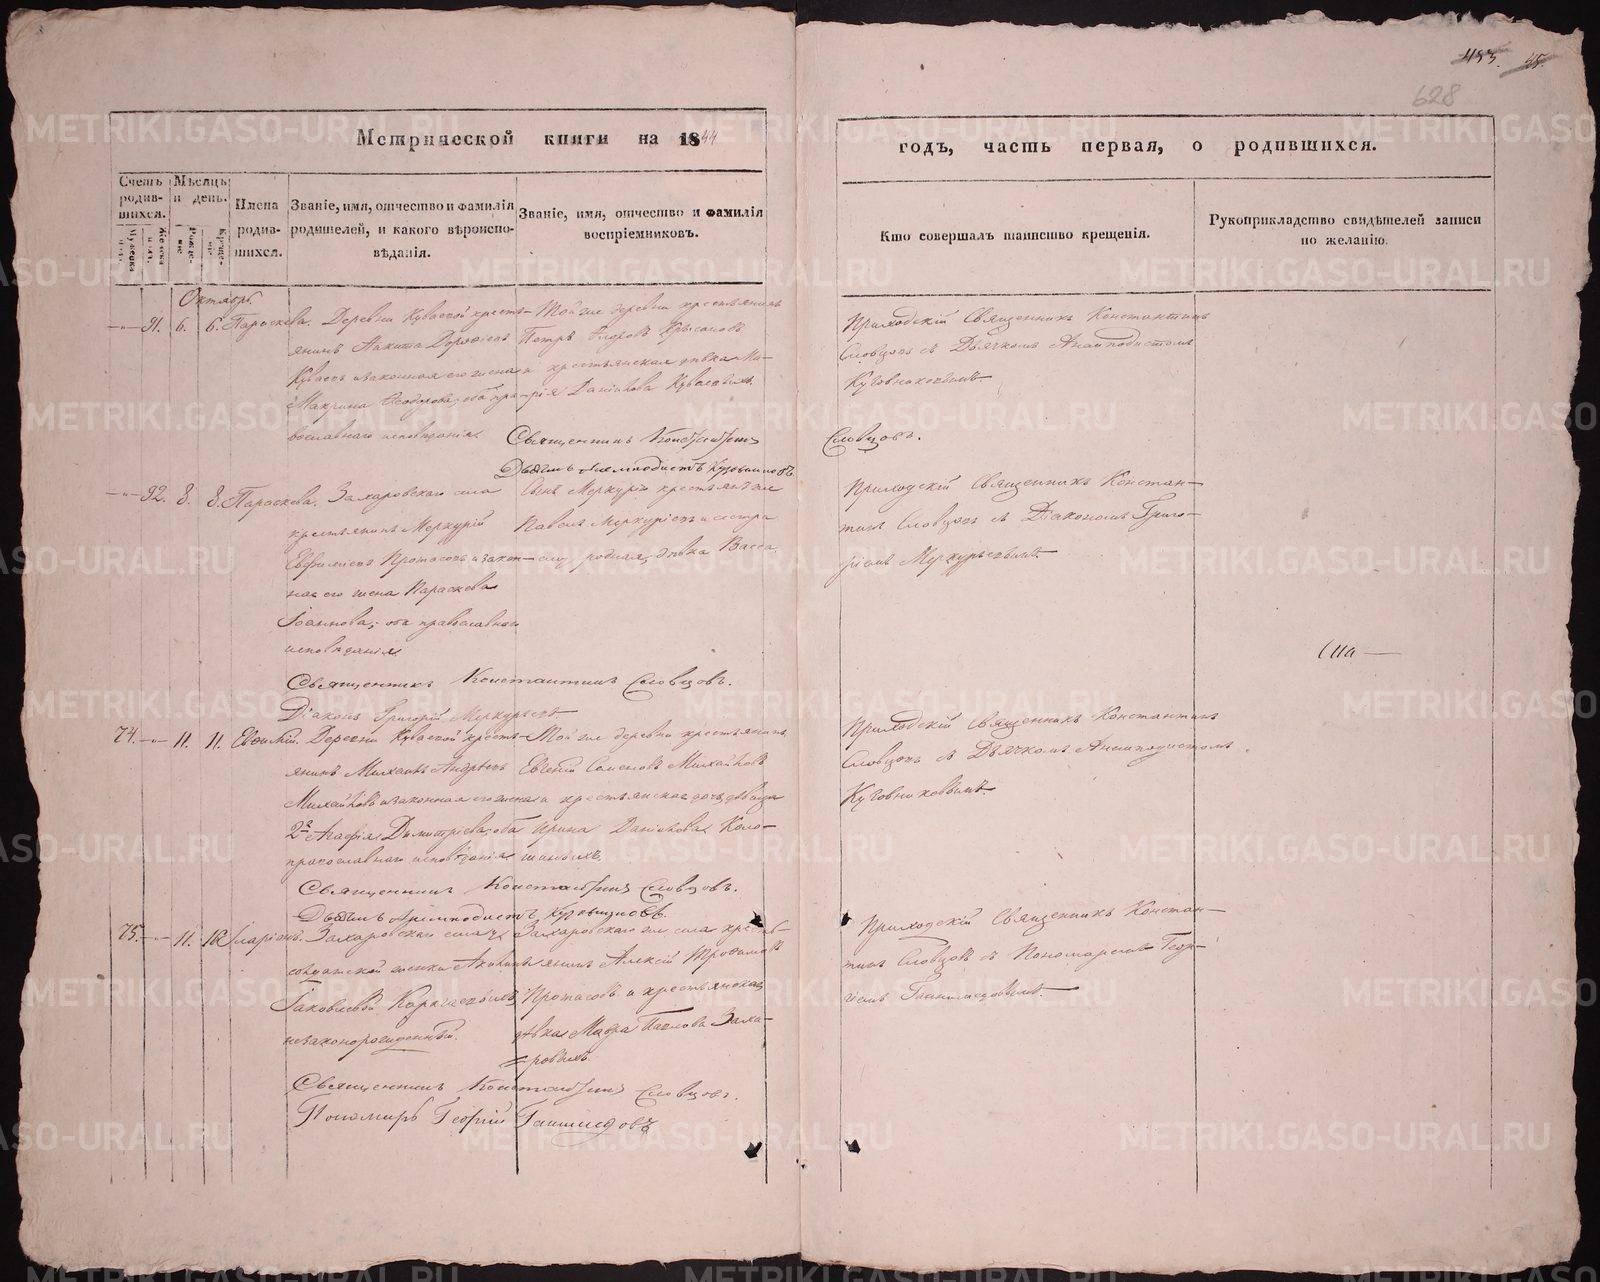 453. 45.
628
Метрической книги на 1844
годъ, часть первая, о родившихся.
Счетъ родив-шихся.
Мужеска пола.
Женска пола.
Мѣсяцъ и день.
Рожде-ніе
Креще-ніе
Имена родив-шихся.
Званіе, имя, отчество и фамилія родителей, и какого вѣроиспо-вѣданія.
Званіе, имя, отчество и фамилія воспріемниковъ.
Кто совершалъ таинство крещенія.
Рукоприкладство свидѣтелей записи по желанію.
Октябрь
91. 6. 6. Параскева.
Деревни Куваевой кресть-
янинъ Никита
Куваевъ и законная его жена
Макрина Ѳеодорова; оба пра-
вославнаго исповѣданія
Той же деревни крестьянинъ
Петръ
и крестьянская дѣвка Ма-
рія Данилова Куваевыхъ.
Приходскій Священникъ Константинъ
Словцовъ съ Дьячкомъ Анемподистомъ
Кузовниковымъ.
Священникъ Константинъ Словцовъ.
Дьячекъ Анемподистъ Кузовниковъ.
92. 8. 8. Параскева.
Захаровскаго села
крестьянинъ Меркурій
Евфимьевъ Протасовъ и закон-
ная его жена Параскева
Іоаннова; оба православнаго
исповѣданія
Сынъ Меркурія крестьянъ же
Павелъ Меркурьевъ и сестра
ему родная, дѣвка Васса
Приходскій Священникъ Констан-
тинъ Словцовъ съ Діакономъ Григо-
ріемъ Меркурьевымъ.
Священникъ Константинъ Словцовъ.
Діаконъ Григорій Меркурьевъ
74. 11. 11. Евѳимій.
Деревни Куваевой кресть-
янинъ Михаилъ Андреевъ
Михайловъ и законная его жена
2я Агафія Димитріева; оба
православнаго исповѣданія
Той же деревни крестьянинъ
Евгеній Самсоновъ Михайловъ
и крестьянская дочь дѣвица
Ирина Данилова
Приходскій Священникъ Константинъ
Словцовъ съ Дьячкомъ Анемподистомъ
Кузовниковымъ.
Священникъ Константинъ Словцовъ.
Дьячекъ Анемподистъ Кузовниковъ.
75. 11. 12. Іларіонъ.
Захаровскаго села
солдатской женки Акилины
Іаковлевой
незаконорожденный.
Захаровскаго же села кресть-
янинъ Алексій Трофимовъ
Протасовъ и крестьянская
дѣвка Мавра Павлова Заха-
ровыхъ.
Приходскій Священникъ Констан-
тинъ Словцовъ съ Пономаремъ Геор-
гіемъ Ганимедовымъ.
Священникъ Константинъ Словцовъ.
Пономарь Георгій Ганимедовъ
METRIKI.GASO-URAL.RU